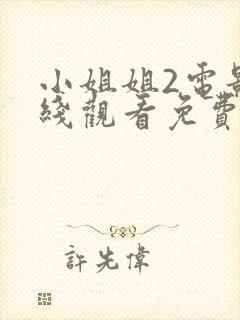 小姐姐2電影
綫觀看免費
許先偉